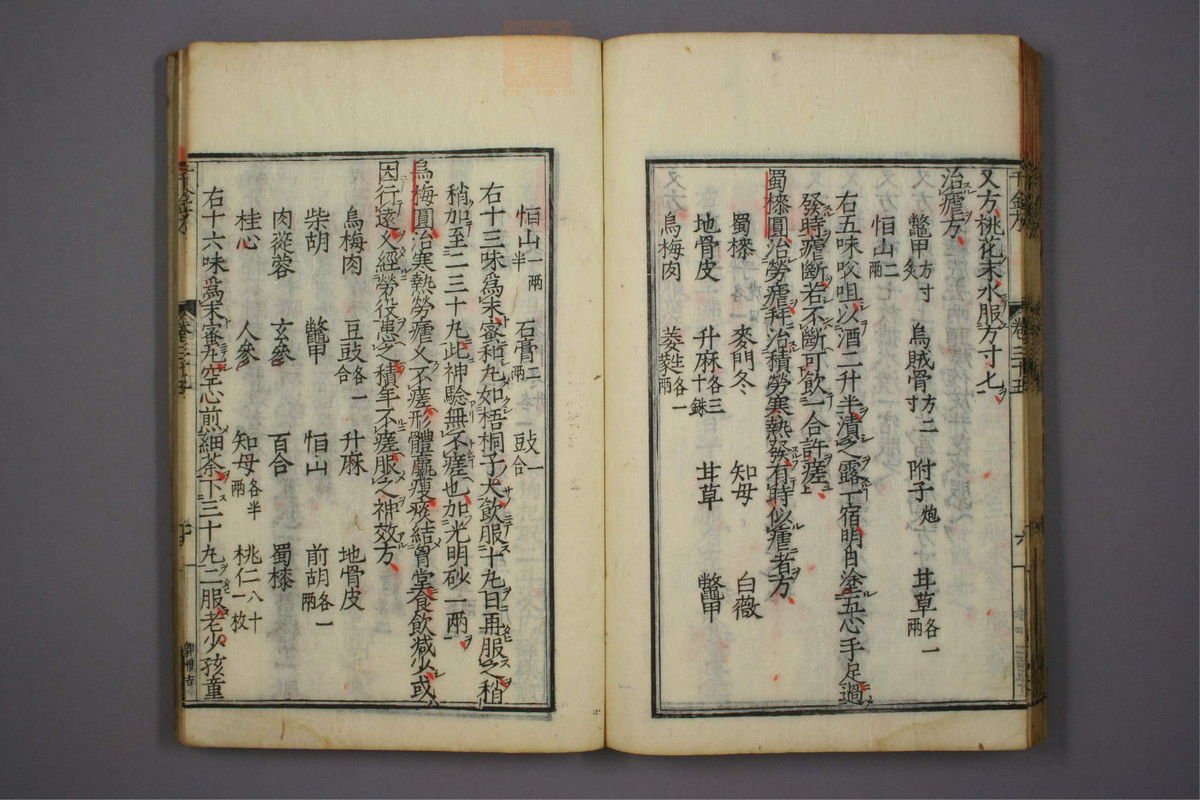 又方桃花末水服方寸匕
治瘧方
鼈甲方寸炙 烏賊骨方二寸 附子炮 甘草各一兩
恒山二兩
右五味㕮咀以酒二升半漬之露一宿明日塗五心手足過
發時瘧斷若不斷可飲一合許瘥
蜀㯶圓治勞瘧并治積勞寒熱發有時似瘧者方
蜀㯶 麥門冬 知母 白薇
地骨皮 升麻各三十銖 甘草 鼈甲
烏梅肉 萎蕤各一兩
恒山一兩半 石膏二兩 豉一合
右十三味爲末蜜和丸如梧桐子大飲服十丸日再服之稍
稍加至二三十丸此神驗無不瘥也加光明砂一兩
烏梅圓治寒熱勞瘧乂不瘥形體羸瘦痰結胷堂食飲減少或
因行遠乂經勞役患之積年不瘥服之神效方
烏梅肉 豆豉各一合 升麻 地骨皮
柴胡 鼈甲 恒山 前胡各一兩
肉蓯蓉 玄參 百合 蜀㯶
桂心 人參 知母各半兩 桃仁八十一枚
右十六味爲末蜜丸空心煎細茶下三十丸二服老少孩童